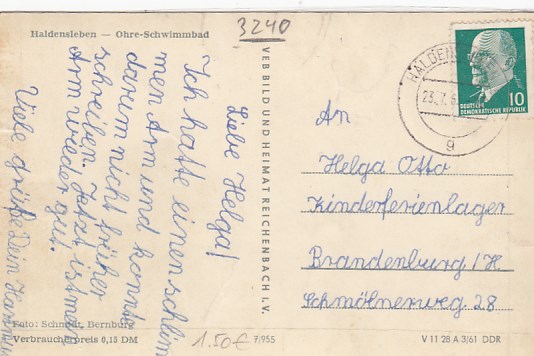 Haldensleben — Ohre-Schwimmbad
3240
Liebe Helga!
Ich hatte einen schlim
men Arm und konnte
darum nicht früher
schreiben. Jetzt ist mein
Arm wieder gut.
Viele grüße Dein
VEB BILD UND HEIMAT REICHENBACH I. V.
HALDENS
23.
g
DEUTSCHE
DEMOKRATISCHE REPUBLIK
10
An
Helga Otto
Kinderferienlager
Brandenburg/H
Schmölnerweg 28
Foto: Schmidt, Bernburg
Verbraucherpreis 0,15 DM
1.50€
7/955
V 11 28 A 3/61 DDR